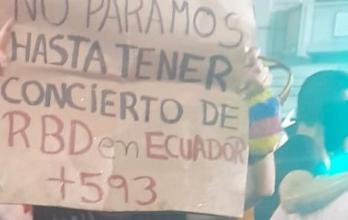 NO PARAMOS
HASTA TENER
CONCIERTO DE
RBD en ECUADOR
+593